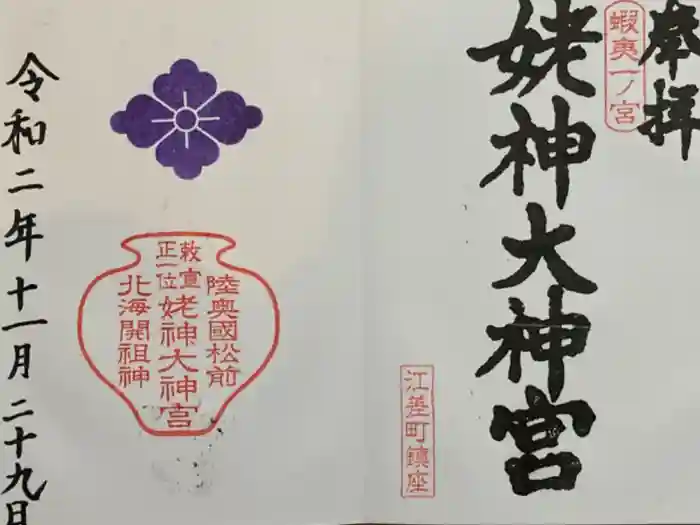 奉拝
蝦夷一ノ宮
姥神大神宮
江差町鎮座
陸奥國松前
敕宣
正一位
姥神大神宮
北海開祖神
令和二年十一月二十九日